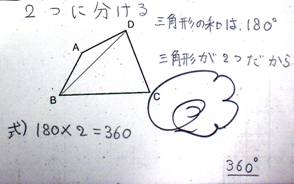 2つに分ける
三角形の和は、180°
三角形が2つだから
A
D
B
C
式) 180×2=360
360°